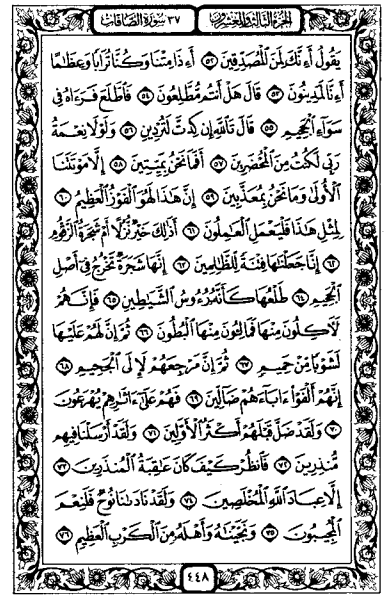 الجزء الثالث والعشرون ٣٧ سورة الصافات
يَقُولُ أَءِنَّكَ لَمِنَ ٱلْمُصَدِّقِينَ ٥٢ أَءِذَا مِتْنَا وَكُنَّا تُرَابًا وَعِظَٰمًا
أَءِنَّا لَمَدِينُونَ ٥٣ قَالَ هَلْ أَنتُم مُّطَّلِعُونَ ٥٤ فَٱطَّلَعَ فَرَءَاهُ فِى
سَوَآءِ ٱلْجَحِيمِ ٥٥ قَالَ تَٱللَّهِ إِن كِدتَّ لَتُرْدِينِ ٥٦ وَلَوْلَا نِعْمَةُ
رَبِّى لَكُنتُ مِنَ ٱلْمُحْضَرِينَ ٥٧ أَفَمَا نَحْنُ بِمَيِّتِينَ ٥٨ إِلَّا مَوْتَتَنَا
ٱلْأُولَىٰ وَمَا نَحْنُ بِمُعَذَّبِينَ ٥٩ إِنَّ هَٰذَا لَهُوَ ٱلْفَوْزُ ٱلْعَظِيمُ ٦٠
لِمِثْلِ هَٰذَا فَلْيَعْمَلِ ٱلْعَٰمِلُونَ ٦١ أَذَٰلِكَ خَيْرٌ نُّزُلًا أَمْ شَجَرَةُ ٱلزَّقُّومِ
٦٢ إِنَّا جَعَلْنَٰهَا فِتْنَةً لِّلظَّٰلِمِينَ ٦٣ إِنَّهَا شَجَرَةٌ تَخْرُجُ فِىٓ أَصْلِ
ٱلْجَحِيمِ ٦٤ طَلْعُهَا كَأَنَّهُۥ رُءُوسُ ٱلشَّيَٰطِينِ ٦٥ فَإِنَّهُمْ
لَءَاكِلُونَ مِنْهَا فَمَالِـُٔونَ مِنْهَا ٱلْبُطُونَ ٦٦ ثُمَّ إِنَّ لَهُمْ عَلَيْهَا
لَشَوْبًا مِّنْ حَمِيمٍ ٦٧ ثُمَّ إِنَّ مَرْجِعَهُمْ لَإِلَى ٱلْجَحِيمِ ٦٨
إِنَّهُمْ أَلْفَوْا۟ ءَابَآءَهُمْ ضَآلِّينَ ٦٩ فَهُمْ عَلَىٰٓ ءَاثَٰرِهِمْ يُهْرَعُونَ
٧٠ وَلَقَدْ ضَلَّ قَبْلَهُمْ أَكْثَرُ ٱلْأَوَّلِينَ ٧١ وَلَقَدْ أَرْسَلْنَا فِيهِم
مُّنذِرِينَ ٧٢ فَٱنظُرْ كَيْفَ كَانَ عَٰقِبَةُ ٱلْمُنذَرِينَ ٧٣
إِلَّا عِبَادَ ٱللَّهِ ٱلْمُخْلَصِينَ ٧٤ وَلَقَدْ نَادَىٰنَا نُوحٌ فَلَنِعْمَ
ٱلْمُجِيبُونَ ٧٥ وَنَجَّيْنَٰهُ وَأَهْلَهُۥ مِنَ ٱلْكَرْبِ ٱلْعَظِيمِ ٧٦
٤٤٨